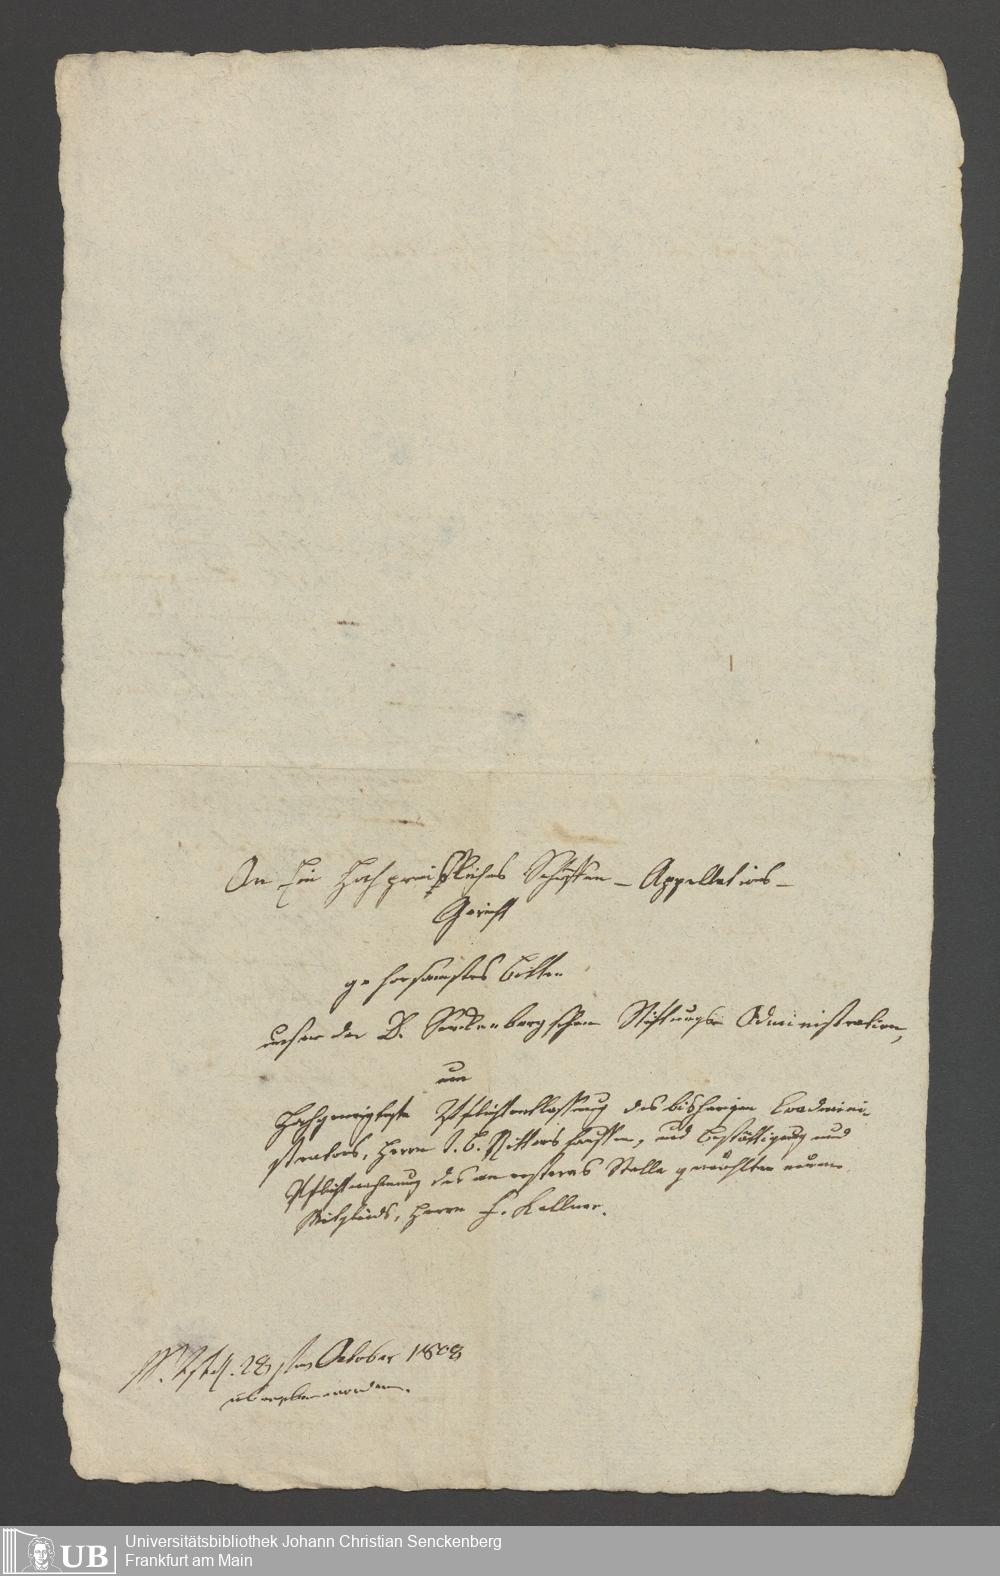 An Ein Hochpreißliches Schöffen-Appellations-
Gericht
gehorsamstes Bitten
unser der D. Senckenbergschen Stiftungs Administration,
um
Hochgeneigteste Pflichtentlassung des bisherigen Coadmini-
strators, Herrn J. B. Rittershaussen, und Bestättigung und
Pflichtnehmung des an ersteres Stelle gewählten neuen
Mitglieds, Herrn F. Kellner.
28sten October 1808
übergeben worden.
UB
Universitätsbibliothek Johann Christian Senckenberg
Frankfurt am Main